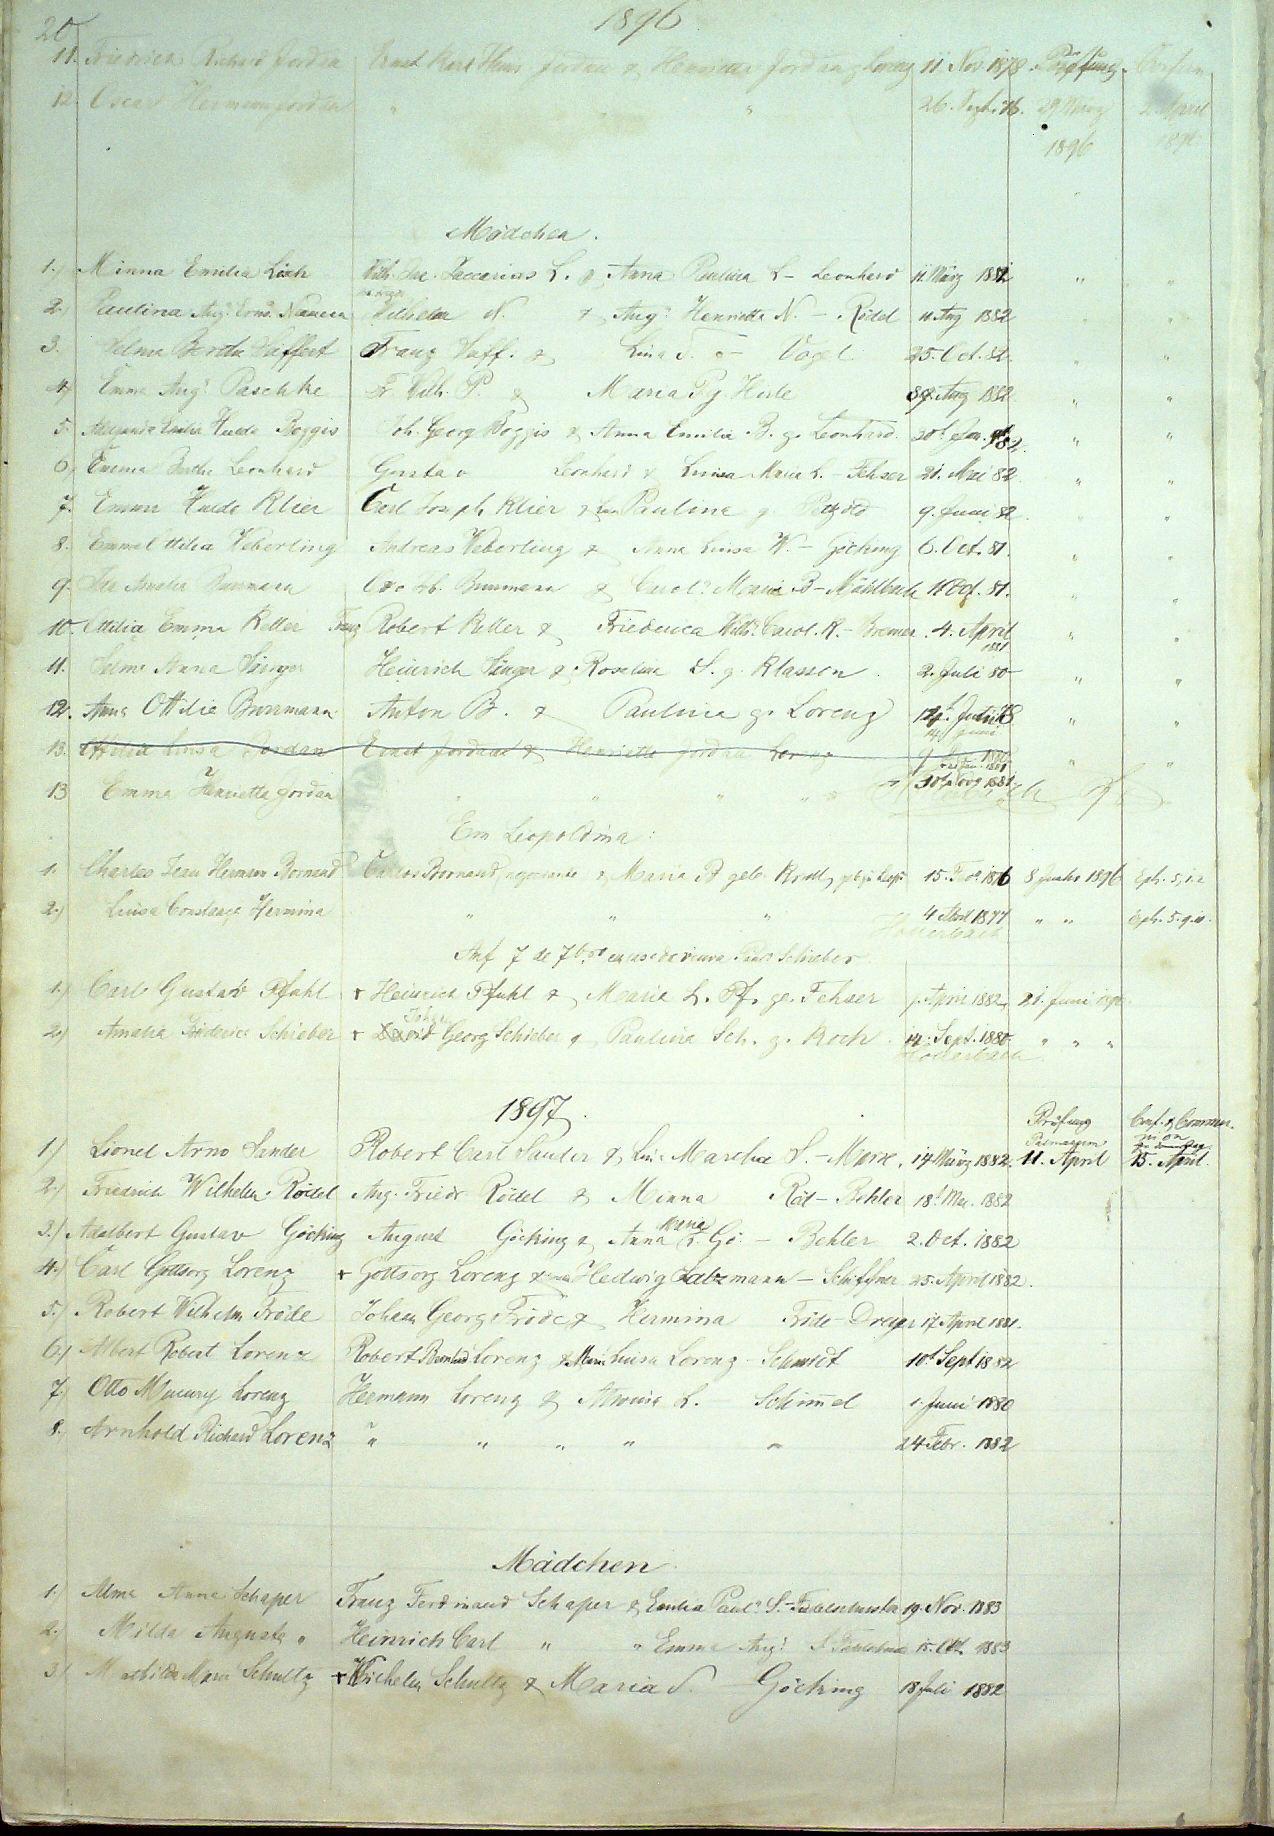 20 1896
11. Friedrich Richard Jordan Ernst Karl Hein Jordan & Henriette Jordan g Lorenz 11 Nov 1878 Prüfung
12. Oscar Hermann Jordan " " 26. Sept. 76. 29 März 2. April
1896 1896
Mädchen.
1.) Minna Emilia Wilh. Zaccarias L. & Anna Paulina L - Leonhard 11 März 1882 " "
2.) Paulina Aug. Wilhelm N. & Aug. Henrietta N. - Rödel 11 Aug 1882 " "
3. Bertha Franz & Lina - Vogel 25. Oct. 82 " "
4) Emma Aug. Paschke Fr. Wilh. P. & Maria P g. Aug 1882 " "
5. Hulda Boggis Joh. Georg Boggis & Anna Emilia B. g. Leonhard. 20t Jan. 82. " "
6) Emma Bertha Leonhard Gustav Leonhard & Luisa Maria L. - Fehser 21. Mai 82 " "
7. Emma Hulda Klier Carl Joseph Klier & Pauline g. 9. Juni 82 " "
8. Emma Ottilia Weberling Andreas Weberling & Anna Luisa W. - Göcking 6. Oct. 81. " "
9. Ida Amalia Burmann Burmann & Carol. Maria B - Mühlbach 81. " "
10. Ottilia Emma Keller Franz Robert Keller & Friederica Wilh. Carol. K. - Bremer. 4. April
1881 " "
11. Selma Anna Singer Heinrich Singer & Roseline S. g. Klassen. 2. Juli 80 " "
12. Anna Ottilie Burmann Anton B. & Paulina g. Lorenz " "
14. Juni
13. Ottilia Luisa Jordan Ernst Jordan & Henrietta Jordan Lorenz " "
13 Emma Henrietta Jordan " " " " 30t Nov 1881
Em Leopoldina:
1. Charles Jean Herman Bornand Bornand, negociante & Maria B geb. 15. 1876 8 1896 Eph. 5,1.2
2.) Luisa Constanze Hermina " " " 4 1877 " " Eph. 5. 9.10.
Hollerbach
Auf 7 de 7bro em casa da viuva Schieber
1.) Carl Gustav Pfuhl + Heinrich Pfuhl & Marie L. Pf. ge. Fehser 1. April 1882. 21. Juni 1896.
2.) Amalia Friederice Schieber + Johan Georg Schieber & Paulina Sch. g. Koch. 14. Sept. 1880. " " "
Hollerbach
1897.
Prüfung Conf. & Commun-
Palmarum nion
1) Lionel Arno Sander Robert Carl Sander & Martha S. - Marx, 14 März 1882. 11. April 15. April.
2.) Friedrich Wilhelm Rödel Aug. Friedr. Rödel & Minna Röd - Behler 18t Mai. 1882
3.) Adalbert Gustav Göcking August Göcking & Anna Maria Gö. - Behler 2. Oct. 1882
4.) Carl Gottsorg Lorenz + Gottsorg Lorenz & Hedwig Salzmann - Schiffner 25. April 1882.
5.) Robert Wilhelm Fröde Johann Georg Fröde, & Hermina Fröde - Dreyer 17 April 1881.
6.) Albert Robert Lorenz Robert Bernhard Lorenz & Maria Luisa Lorenz - Schmidt 10t Sept 1882
7.) Otto Lorenz Hermann Lorenz & Alwina L. Schimmel 1. Juni 1880
8. Arnhold Richard Lorenz " " " " " 24 Febr. 1882
Mädchen.
1.) Alma Anna Schaper Franz Ferdinand Schaper & Emilia Paul. S. - 19. Nov. 1883
2.) Milda Augusta " Heinrich Carl " " Emma Aug. S. 15. Okt. 1883
3.) Mathilde Maria Schultz + Wilhelm Schultz & Maria S. Göcking 18 Juli 1882